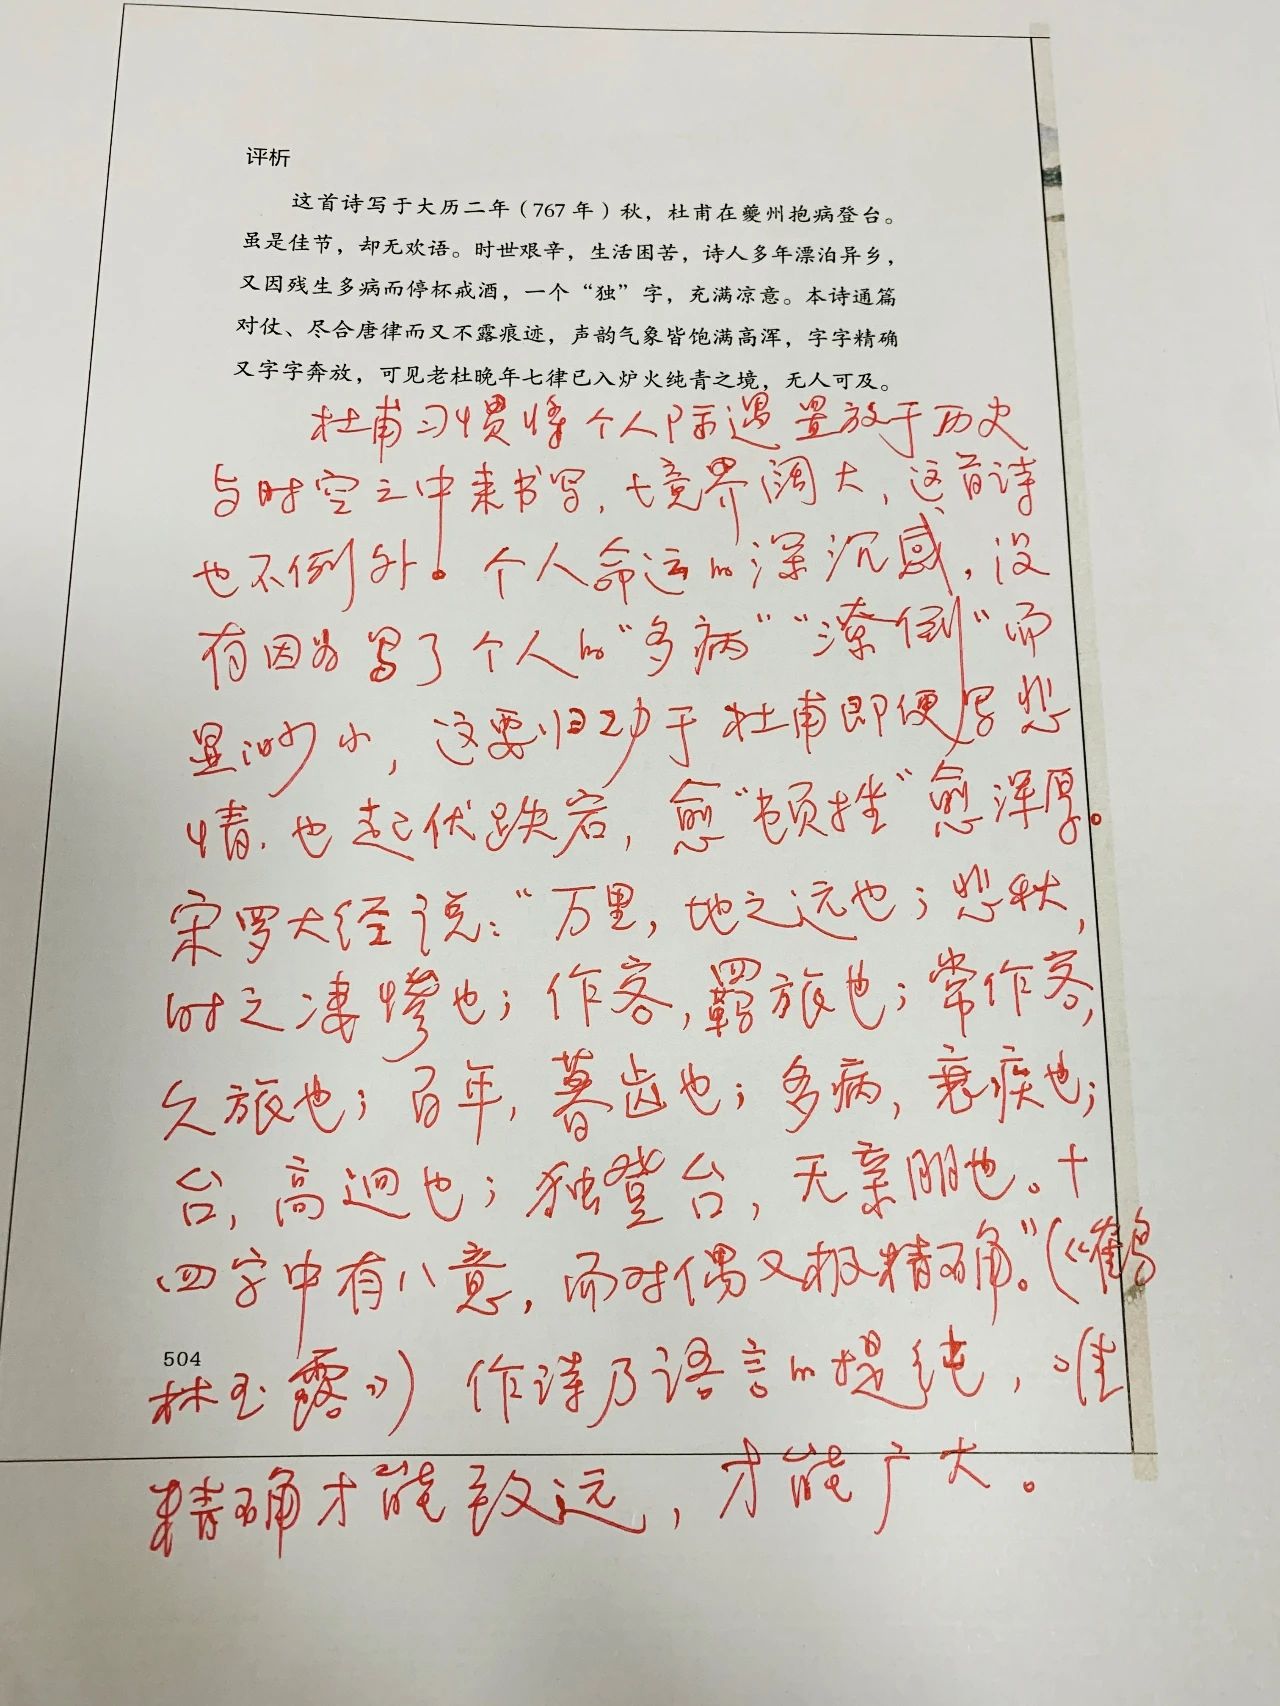 评析
这首诗写于大历二年（767年）秋，杜甫在夔州抱病登台。
虽是佳节，却无欢语。时世艰辛，生活困苦，诗人多年漂泊异乡，
又因残生多病而停杯戒酒，一个“独”字，充满凉意。本诗通篇
对仗、尽合唐律而又不露痕迹，声韵气象皆饱满高浑，字字精确
又字字奔放，可见老杜晚年七律已入炉火纯青之境，无人可及。
杜甫习惯将个人际遇置放于历史
与时空之中来书写，境界阔大，这首诗
也不例外。个人命运的深沉感，没
有因为写了个人的“多病”“潦倒”而
显渺小，这要归功于杜甫即便写悲
情，也起伏跌宕，愈“顿挫”愈浑厚。
宋罗大经说：“万里，地之远也；悲秋，
时之凄惨也；作客，羁旅也；常作客，
久旅也；百年，暮齿也；多病，衰疾也；
台，高迥也；独登台，无亲朋也。十
四字中有八意，而对偶又极精确。”（《鹤
504
林玉露》）作诗乃语言的提纯，唯
精确才能致远，才能广大。